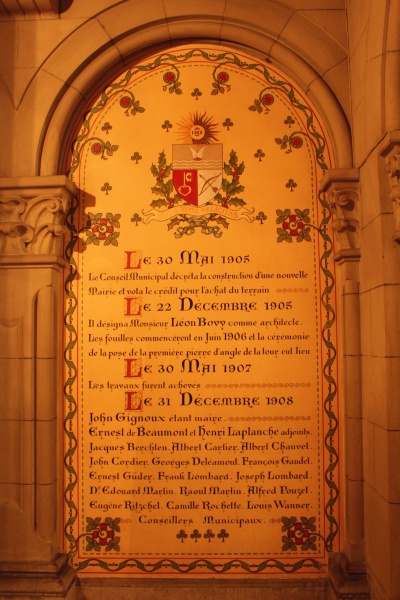 Le 30 Mai 1905
Le Conseil Municipal décréta la construction d'une nouvelle
Mairie et vota le crédit pour l'achat du terrain
Le 22 Décembre 1905
Il désigna Monsieur Léon Bovy comme architecte.
Les fouilles commencèrent en Juin 1906 et la cérémonie
de la pose de la première pierre d'angle de la tour eut lieu
Le 30 Mai 1907
Les travaux furent achevés
Le 31 Décembre 1908
John Gignoux étant maire.
Ernest de Beaumont et Henri Laplanche adjoints.
Jacques Berchten. Albert Cartier. Albert Chauvet.
John Cordier. Georges Deleamont. François Gaudel.
Ernest Güder. Frank Lombard. Joseph Lombard.
Dr Edouard Martin. Raoul Martin. Alfred Pouzet.
Eugène Ritzchel. Camille Rochette. Louis Wanner.
Conseillers Municipaux.